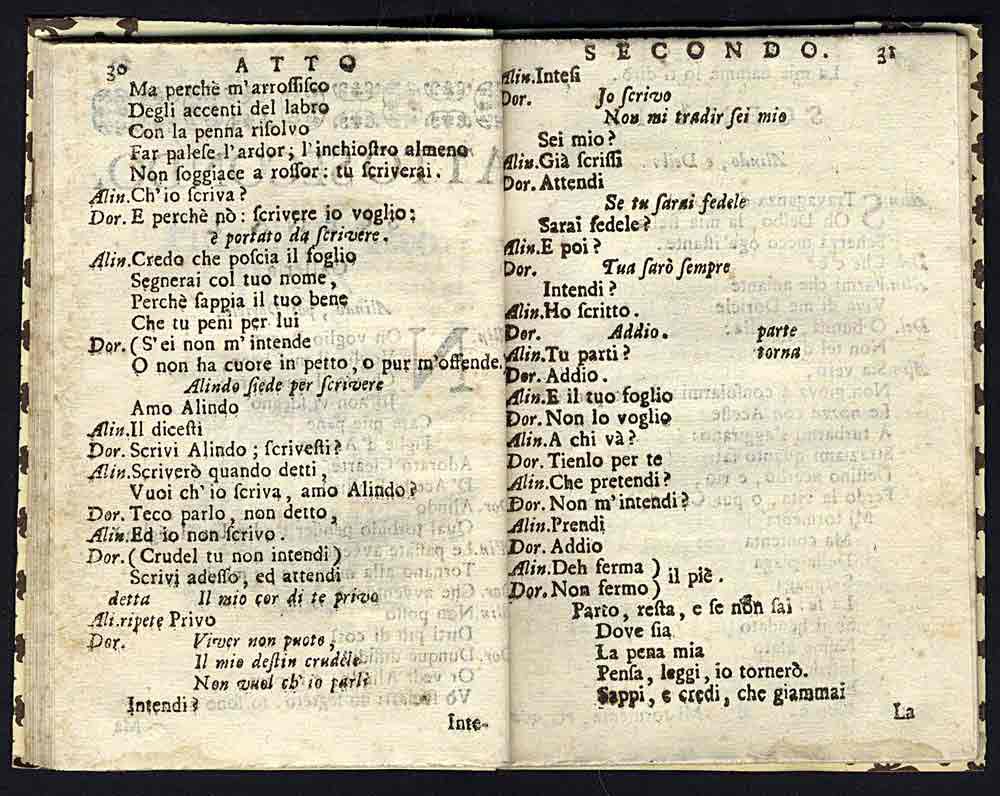 30 ATTO
Ma perchè m'arroſſiſco
Degli accenti del labro
Con la penna riſolvo
Far paleſe l'ardor; l'inchioſtro almeno
Non ſoggiace a roſſor: tu ſcriverai.
Alin.Ch'io ſcriva?
Dor. E perchè nò: ſcrivere io voglio;
è portato da ſcrivere.
Alin.Credo che poſcia il foglio
Segnerai col tuo nome,
Perchè ſappia il tuo bene
Che tu peni per lui
Dor. (S'ei non m'intende
O non ha cuore in petto, o pur m'offende.
Alindo ſiede per ſcrivere
Amo Alindo
Alin.Il diceſti
Dor. Scrivi Alindo; ſcriveſti?
Alin.Scriverò quando detti,
Vuoi ch'io ſcriva, amo Alindo?
Dor. Teco parlo, non detto,
Alin.Ed io non ſcrivo.
Dor. (Crudel tu non intendi)
Scrivi adeſſo, ed attendi
detta Il mio cor di te privo
Ali.ripete Privo
Dor. Viver non puote,
Il mio deſtin crudele
Non vuol ch'io parli
Intendi?
Inte-
SECONDO. 31
Alin.Inteſi
Dor. Io ſcrivo
Non mi tradir ſei mio
Sei mio?
Alin.Già ſcriſſi
Dor. Attendi
Se tu ſarai fedele
Sarai fedele?
Alin.E poi?
Dor. Tua ſarò ſempre
Intendi?
Alin.Ho ſcritto.
Dor. Addio. parte
Alin.Tu parti? torna
Dor. Addio.
Alin.E il tuo foglio
Dor. Non lo voglio
Alin.A chi và?
Dor. Tienlo per te
Alin.Che pretendi?
Dor. Non m'intendi?
Alin.Prendi
Dor. Addio
Alin.Deh ferma )
Dor. Non fermo) il piè.
Parto, reſta, e ſe non ſai
Dove ſia
La pena mia
Penſa, leggi, io tornerò.
Sappi, e credi, che giammai
La